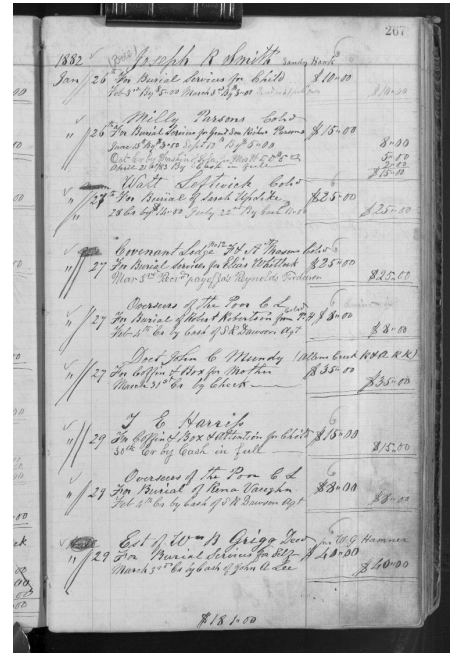 267
1882 Joseph R Smith Sandy Hook
Jan 26 For Burial Services for Child $10.00
Feb 3rd By $5.00 March 3rd By $5.00
Milly Parsons Cold
" 26th For Burial Services for Grand Son Parsons $15.00
June 15th By $8.00 Sept 17th By $5.00 8.00
Oct 5.00
April 21st 83 By Cash 2.00
$15.00
Walt Leftwich Cold
" 27 For Burial of Sarah Updike $25.00
28 Cr by $14.00 July 22nd By Cash 11.00 $25.00
Covenant Lodge F & A Mason Cold
" 27 For Burial Services for Whitlock $25.00
Mar 3rd Reynolds $25.00
Overseers of the Poor C L
" 27 For Burial of Robert Robertson from $8.00
Feb 4th Cr by Cash of S R Dawson Agt $8.00
Doct John C Mundy (Allens Creek R & A R R)
" 27 For Coffin & Box for Mother $35.00
March 31st Cr by Check $35.00
T E Harriss
" 29 For Coffin & Box & Attention for Child $15.00
30th Cr by Cash in full $15.00
Overseers of the Poor C L
" 29 For Burial of Rena Vaughn $8.00
Feb 4th Cr by Cash of S R Dawson Agt $8.00
Est of Wm B Grigg Decd per W G Hamner
" 29 For Burial Services for $40.00
March 3rd Cr by Cash of John A Lee $40.00
$181.00